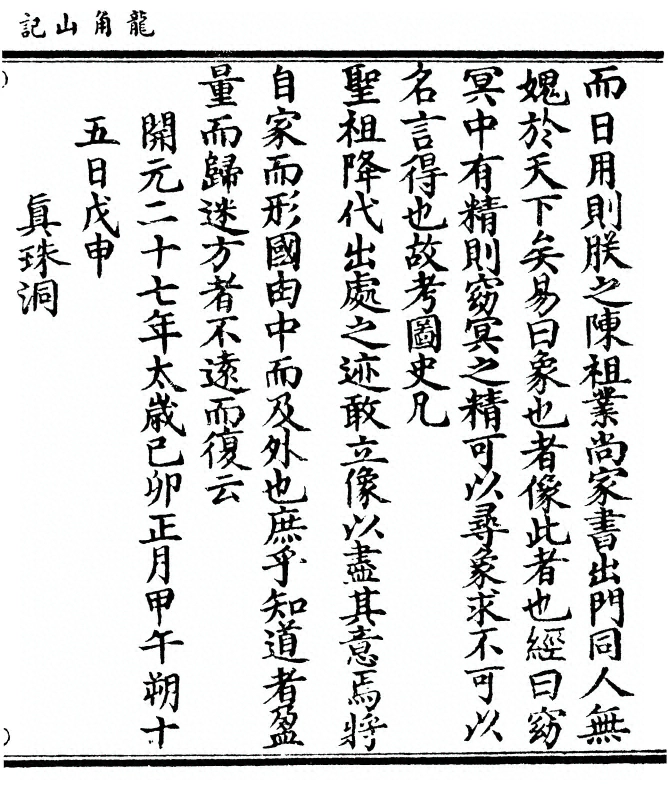 龍角山記
而日用則朕之陳祖業尚家書出門同人無
媿於天下矣易曰象也者像此者也經曰窈
冥中有精則窈冥之精可以尋象求不可以
名言得也故考圖史凡
聖祖降代出處之迹敢立像以盡其意焉將
自家而形國由中而及外也庶乎知道者盈
量而歸迷方者不遠而復云
開元二十七年太歲己卯正月甲午朔十
五日戊申
真珠洞